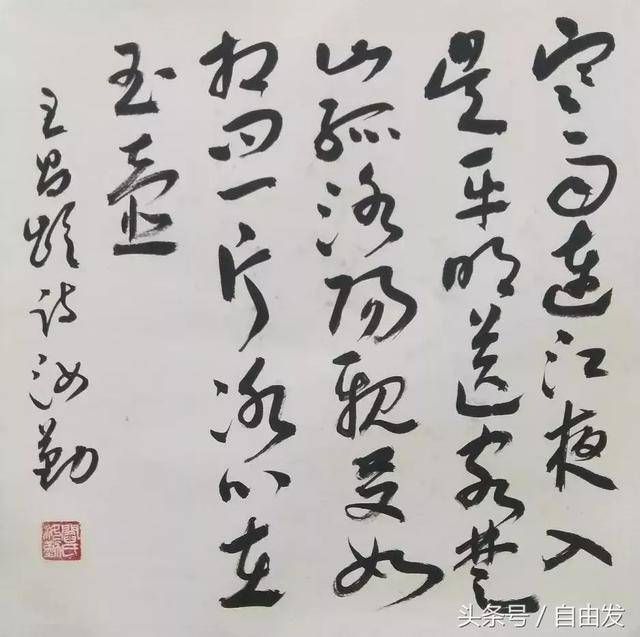 寒雨連江夜入
吴平明送客楚
山孤洛陽親友如
相問一片冰心在
玉壺
王昌齡詩汝勤
头条号 / 自由发